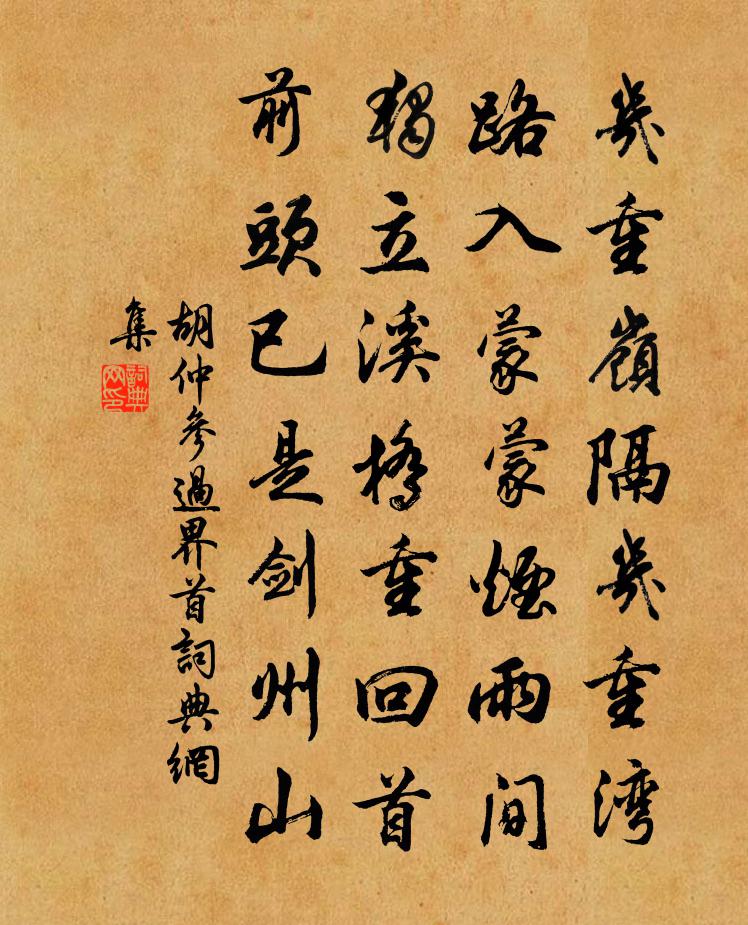 幾重嶺隔幾重湾
路入蒙蒙煙雨間
獨立溪橋重回首
前頭已是劍州山
胡仲參過界首詞典網
集
詞典網印